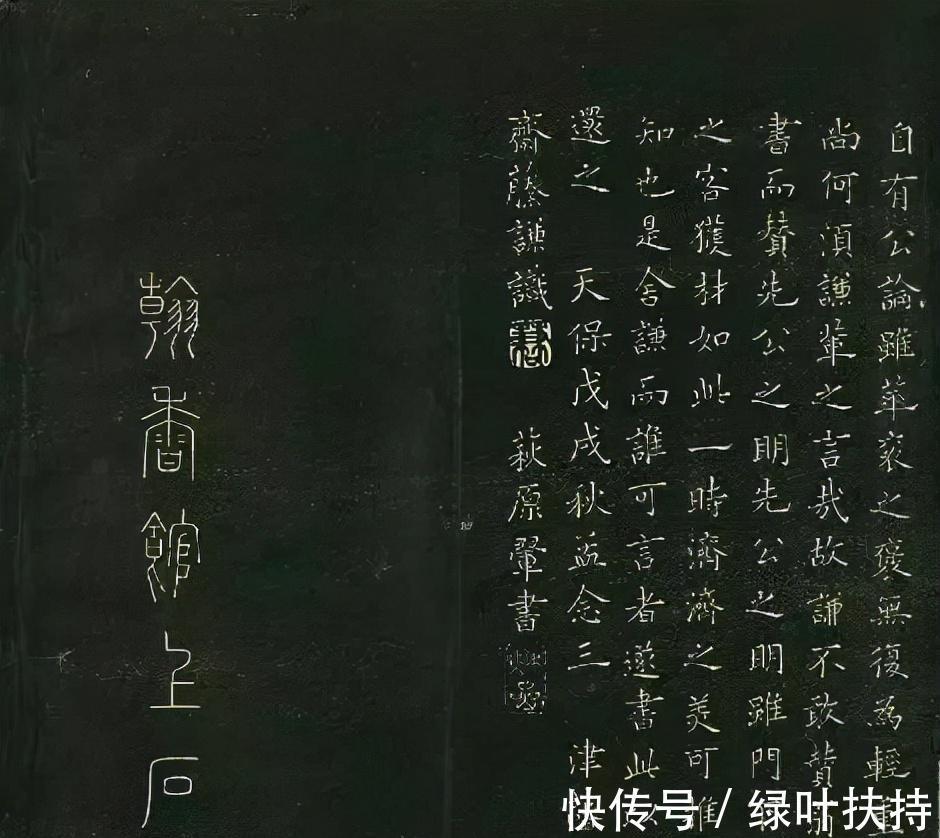 自有公論雖華衮之褒無復為輕
尚何須謙輩之言哉故謙不敢贊
書而贊先公之明先公之明雖門
之客獲材如此一時濟濟之美可推
知也是舍謙而誰可言者遂書此以
還之 天保戊戌秋孟念三 津
齋藤謙識 萩原翬書
翰香館上石
快传号 / 绿叶扶持